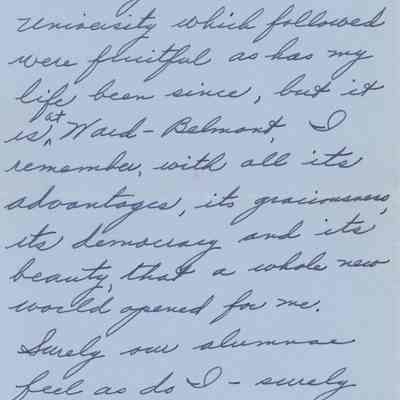 University which followed
were fruitful as has my
life been since, but it
is at Ward-Belmont, I
remember, with all its
advantages, its graciousness,
its democracy and its
beauty, that a whole new
world opened for me.
Surely our alumnae
feel as do I - surely